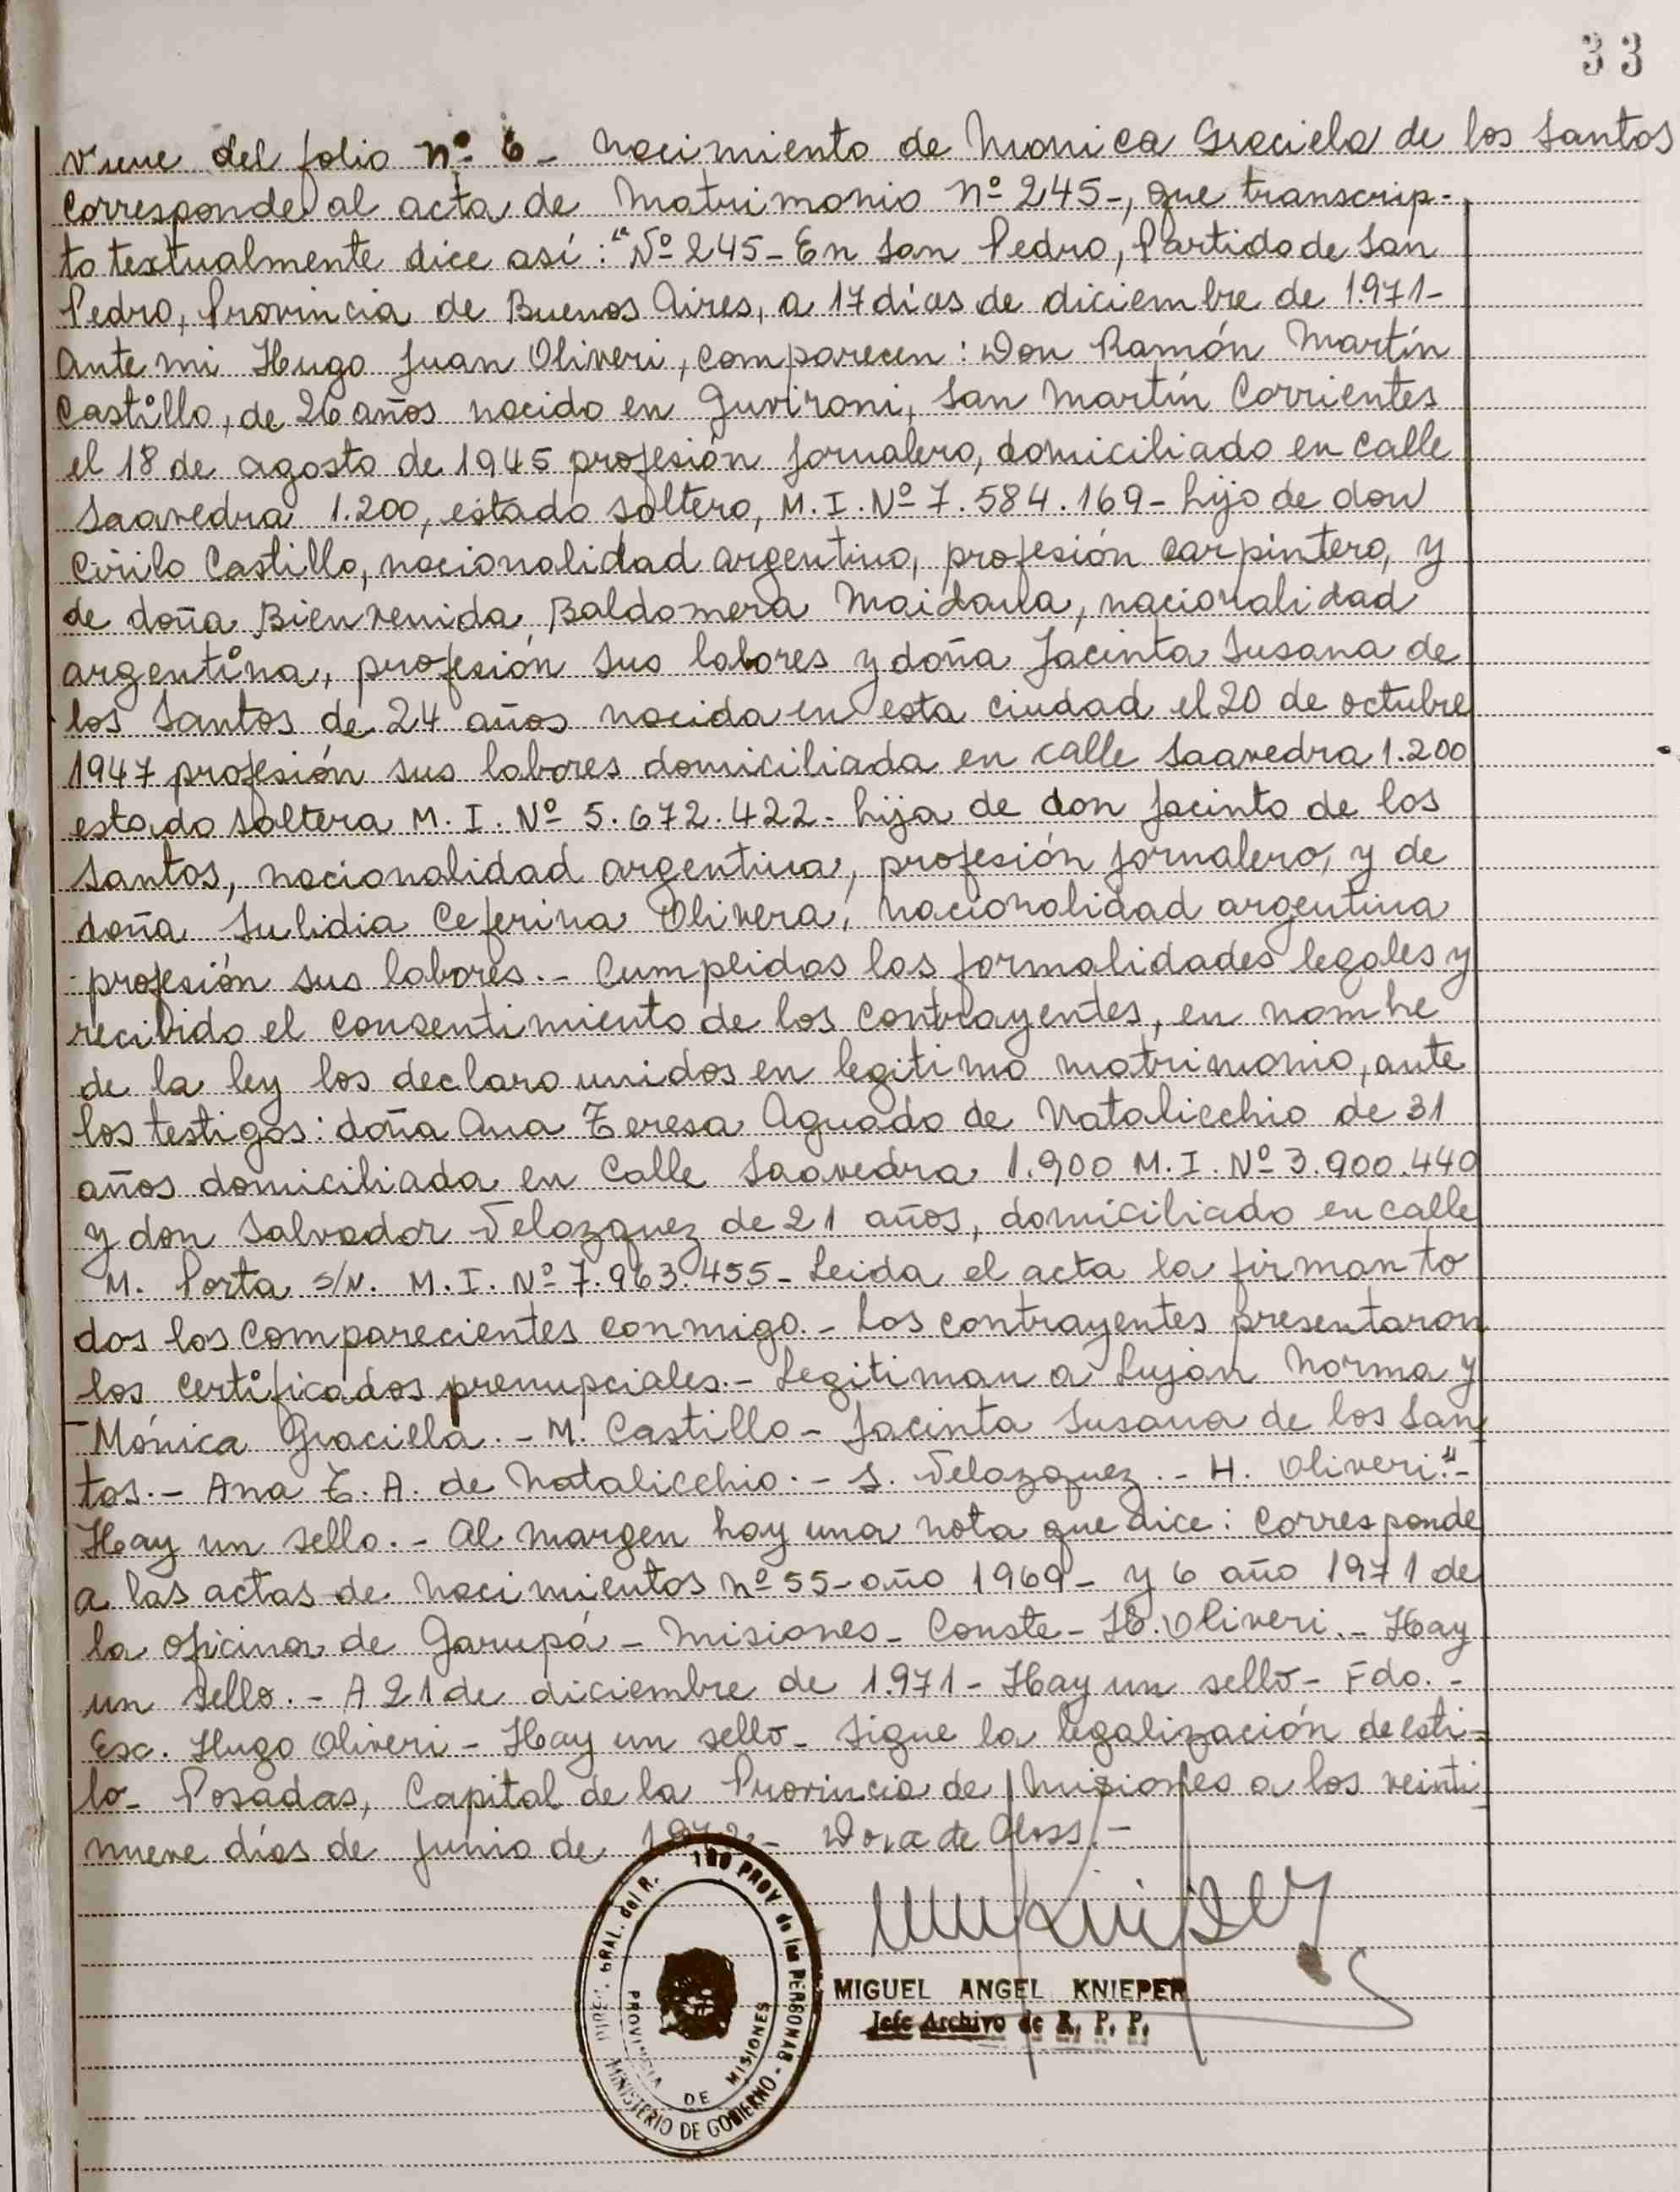 33
Viene del folio Nº 6 - Nacimiento de Monica Graciela de los Santos
Corresponde al acta de Matrimonio Nº 245-, que transcrip-
to textualmente dice así: "Nº 245 - En San Pedro, Partido de San
Pedro, Provincia de Buenos Aires, a 17 días de diciembre de 1.971-
Ante mi Hugo Juan Oliveri, comparecen: Don Ramón Martín
Castillo, de 26 años nacido en Guvironi, San Martín Corrientes
el 18 de agosto de 1945 profesión jornalero, domiciliado en calle
Saavedra 1.200, estado soltero, M. I. Nº 7.584.169 - hijo de don
Cirilo Castillo, nacionalidad argentino, profesión carpintero, y
de doña Bienvenida Baldomera Maidana, nacionalidad
argentina, profesión sus labores y doña Jacinta Susana de
los Santos de 24 años nacida en esta ciudad el 20 de octubre
1947 profesión sus labores domiciliada en calle Saavedra 1.200
estado soltera M. I. Nº 5.672.422 - hija de don Jacinto de los
Santos, nacionalidad argentina, profesión jornalero, y de
doña Sulidia Ceferina Olivera, nacionalidad argentina
profesión sus labores. - Cumplidas las formalidades legales y
recibido el consentimiento de los contrayentes, en nombre
de la ley los declaro unidos en legitimo matrimonio, ante
los testigos: doña Ana Teresa Aguado de Natalicchio de 31
años domiciliada en Calle Saavedra 1.900 M. I. Nº 3.900.440
y don Salvador Velazquez de 21 años, domiciliado en calle
M. Porta s/N. M. I. Nº 7.963.455 - Leida el acta la firman to
dos los comparecientes conmigo. - Los contrayentes presentaron
los certificados prenupciales. - Legitiman a Luján Norma y
Mónica Graciela. - M. Castillo - Jacinta Susana de los San
tos. - Ana T. A. de Natalicchio. - S. Velazquez. - H. Oliveri."-
Hay un sello. - Al margen hay una nota que dice: Corresponde
a las actas de Nacimientos Nº 55 - año 1969 - y 6 año 1971 de
la oficina de Garupá - Misiones - Conste - H. Oliveri. - Hay
un sello. - A 21 de diciembre de 1.971 - Hay un sello - Fdo. -
Esc. Hugo Oliveri - Hay un sello - Sigue la legalización de esti-
lo - Posadas, Capital de la Provincia de Misiones a los veinti
nueve días de Junio de
MIGUEL ANGEL KNIEPER
Jefe Archivo de R. P. P.
GRAL. del R. PROV. de las PERSONAS - MINISTERIO DE GOBIERNO
PROVINCIA DE MISIONES